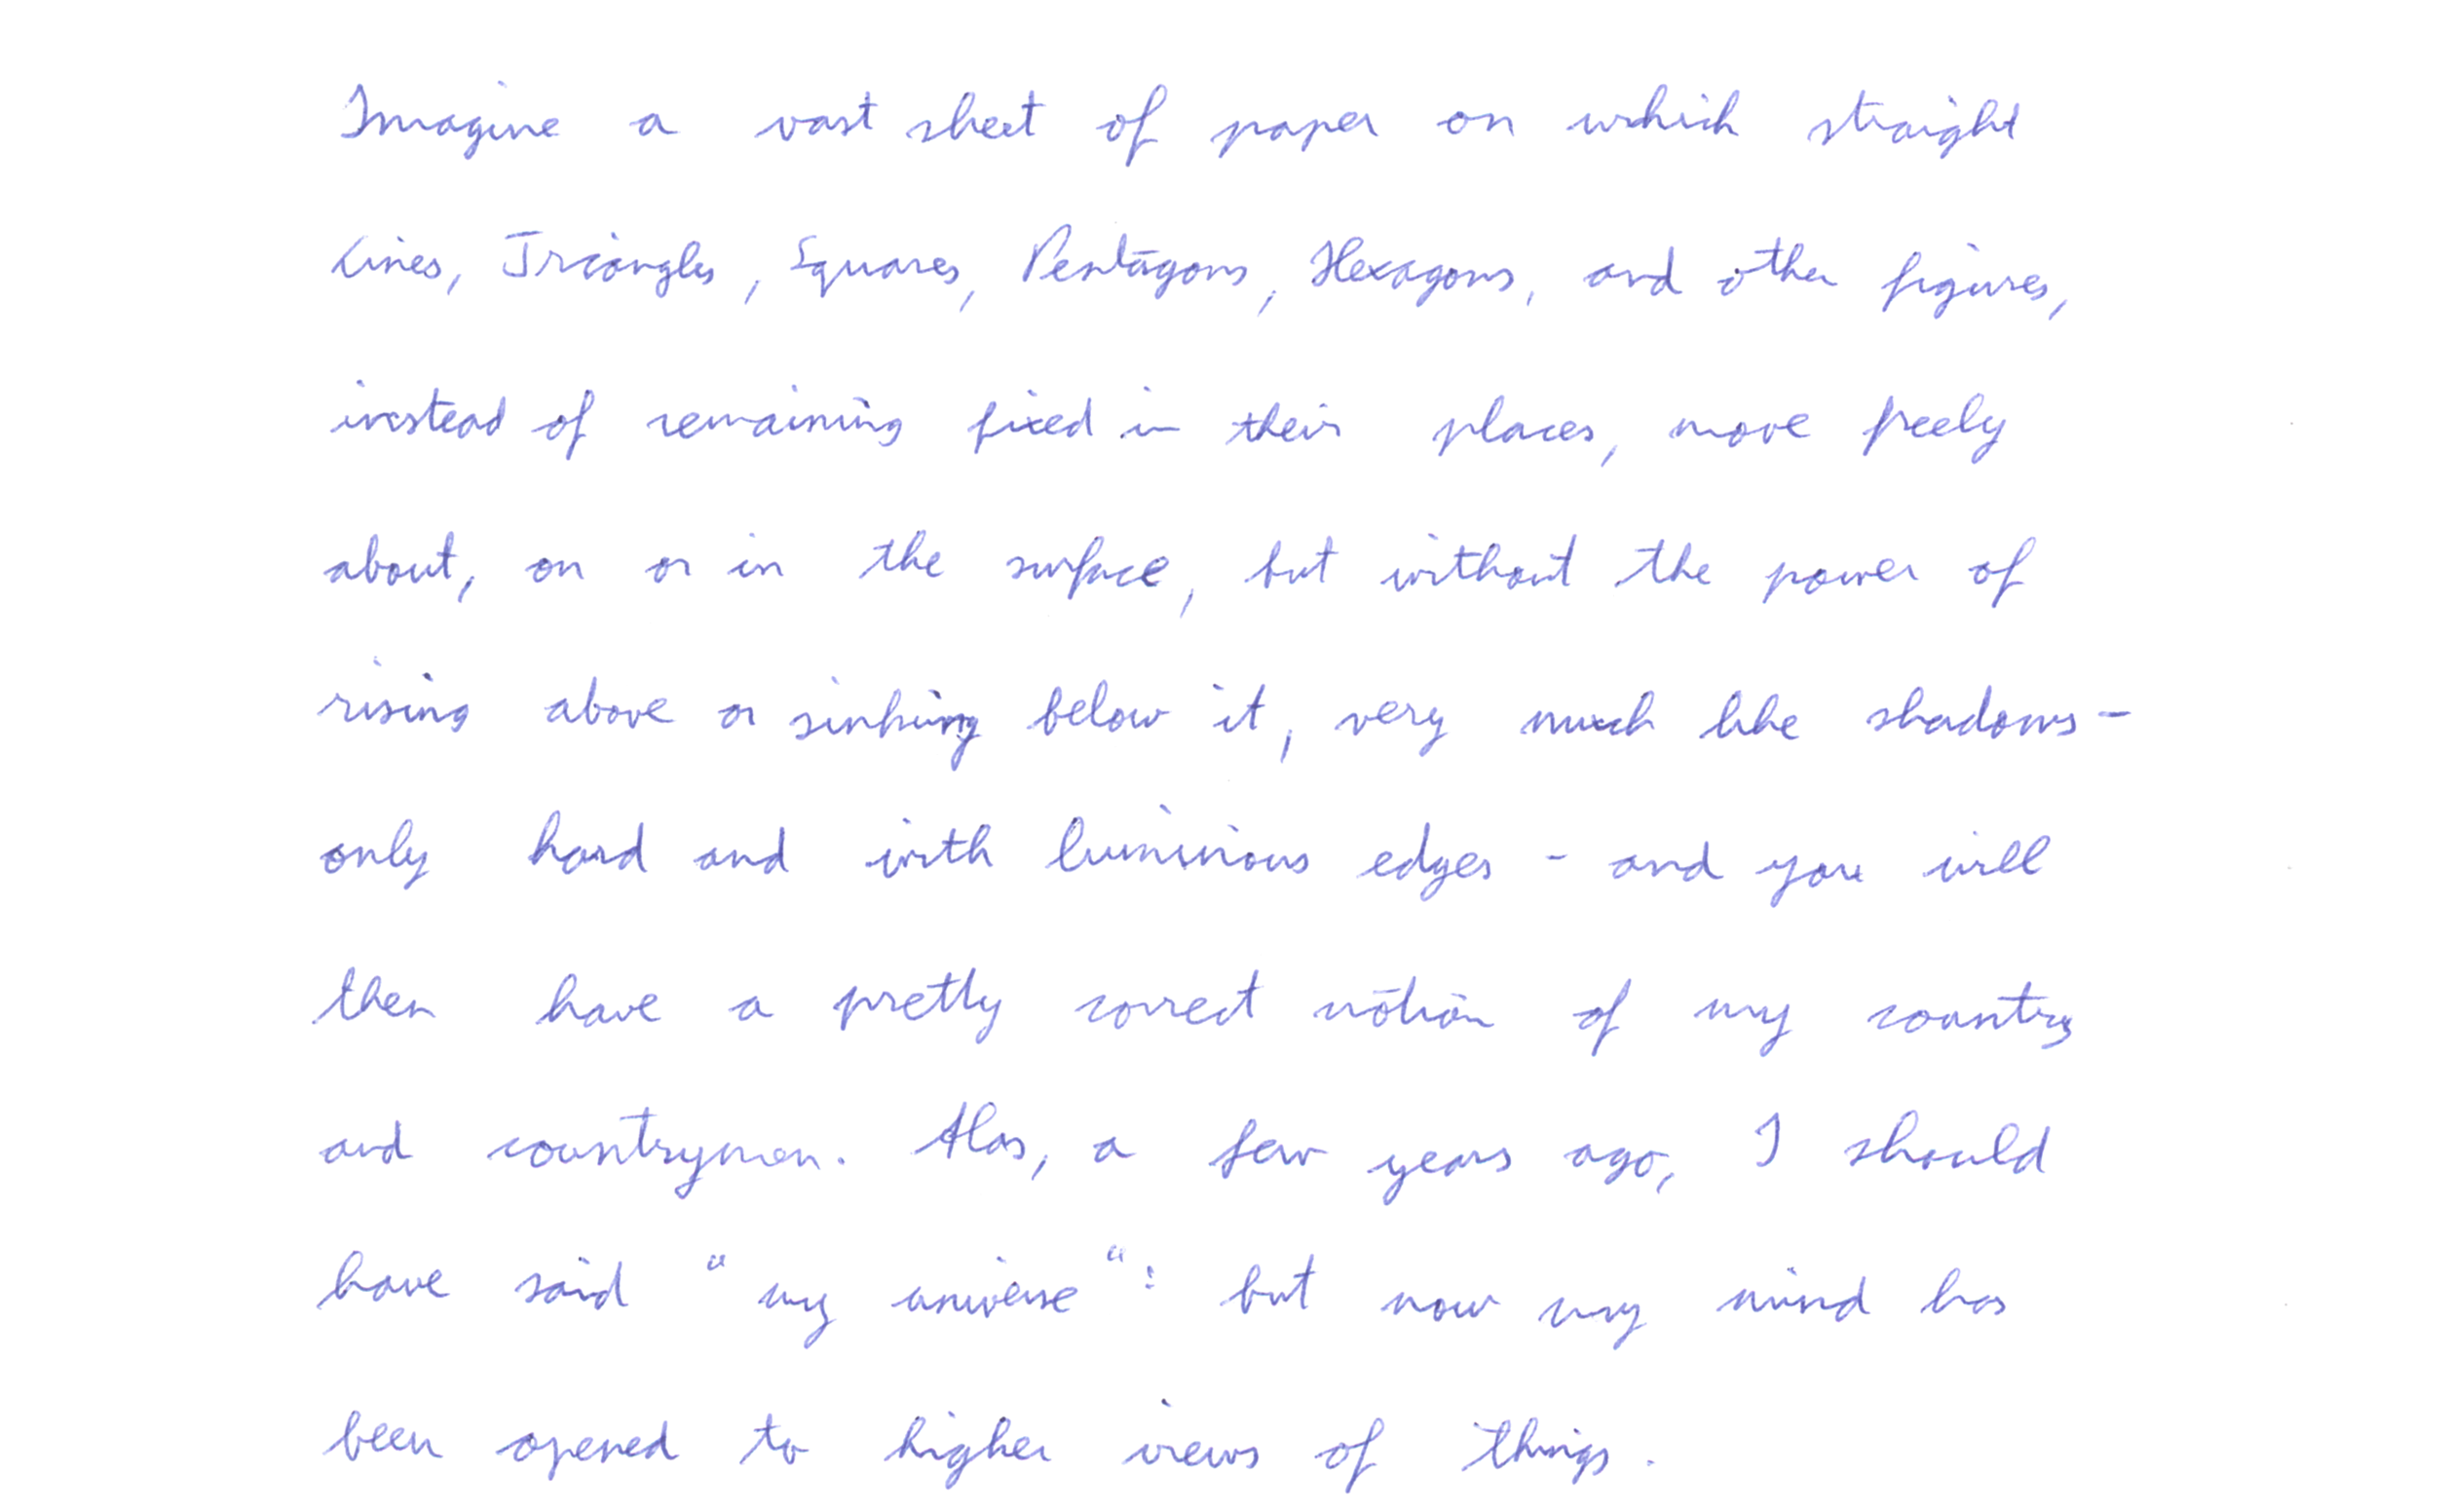 Imagine a vast sheet of paper on which straight
Lines, Triangles, Squares, Pentagons, Hexagons, and other figures,
instead of remaining fixed in their places, move freely
about, on or in the surface, but without the power of
rising above or sinking below it, very much like shadows -
only hard and with luminous edges - and you will
then have a pretty correct notion of my country
and countrymen. Alas, a few years ago, I should
have said "my universe": but now my mind has
been opened to higher views of things.